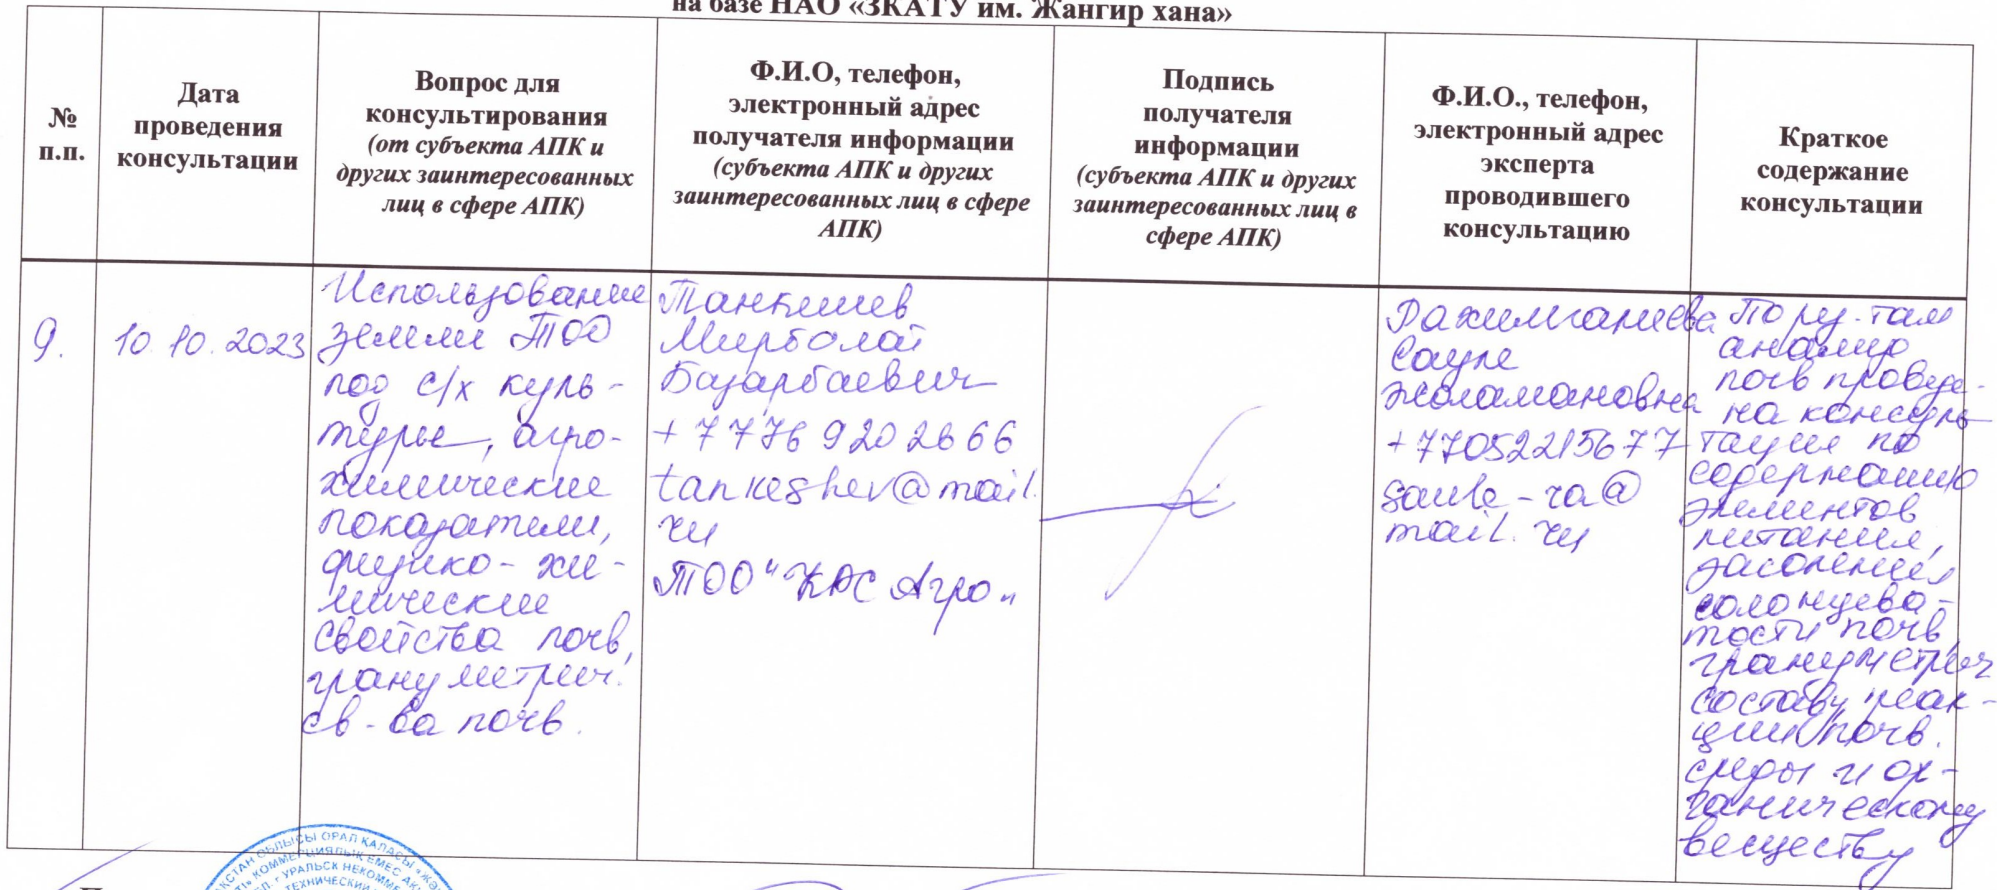 на базе НАО «ЗКАТУ им. Жангир хана»
№
п.п.
Дата
проведения
консультации
Вопрос для
консультирования
(от субъекта АПК и
других заинтересованных
лиц в сфере АПК)
Ф.И.О, телефон,
электронный адрес
получателя информации
(субъекта АПК и других
заинтересованных лиц в сфере
АПК)
Подпись
получателя
информации
(субъекта АПК и других
заинтересованных лиц в
сфере АПК)
Ф.И.О., телефон,
электронный адрес
эксперта
проводившего
консультацию
Краткое
содержание
консультации
9.
10.10.2023
Использование
земли ТОО
под с/х куль-
туры, агро-
химические
показатели,
физико-хи-
мические
свойства почв,
грануметрич.
св-ва почв.
Танкишев
Мирболат
Базарбаевич
+7 776 920 2666
tankeshev@mail.
ru
ТОО "КАС Агро"
Рахимгалиева
Сауле
Жоламановна
+77052215677
saule-ra@
mail.ru
По рез-там
анализа
почв проведе-
на консуль-
тация по
содержанию
элементов
питания,
засоления
солонцева-
тости почв,
грануметрич
составу, реак-
ции почв.
среды и ор-
ганическому
веществу